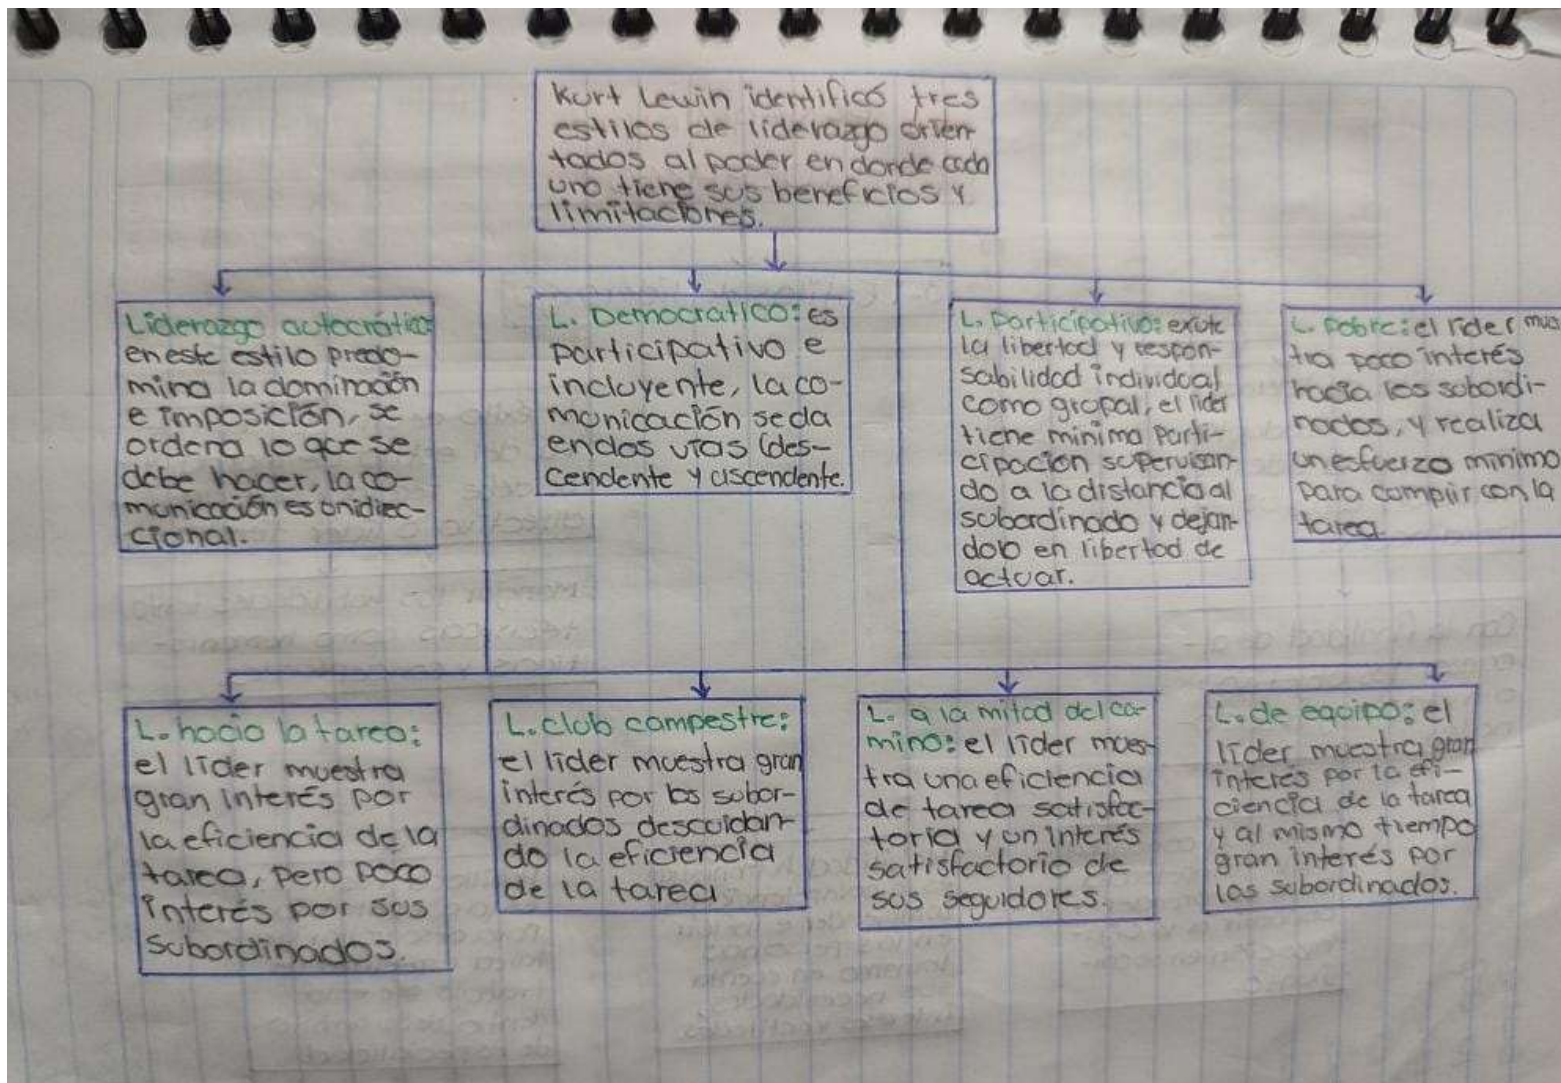 Kurt Lewin identificó tres
estilos de liderazgo orien-
tados al poder en donde cada
uno tiene sus beneficios y
limitaciones.
Liderazgo autocrático
en este estilo predo-
mina la dominación
e imposición, se
ordena lo que se
debe hacer, la co-
municación es unidirec-
cional.
L. Democratico: es
participativo e
incluyente, la co-
municación se da
en dos vías (des-
cendente y ascendente.
L. Participativo: existe
la libertad y respon-
sabilidad individual
como grupal, el lider
tiene minima parti-
cipación supervisan-
do a la distancia al
subordinado y dejan-
dolo en libertad de
actuar.
L. Pobre: el lider mues
tra poco interés
hacia los subordi-
nados, y realiza
un esfuerzo minimo
para cumplir con la
tarea.
L. hacia la tarea:
el líder muestra
gran interés por
la eficiencia de la
tarea, pero poco
interés por sus
subordinados.
L. club campestre:
el líder muestra gran
interés por los subor-
dinados descuidan-
do la eficiencia
de la tarea
L. a la mitad del ca-
mino: el líder mues-
tra una eficiencia
de tarea satisfac-
toria y un interés
satisfactorio de
sus seguidores.
L. de equipo: el
líder muestra gran
interés por la efi-
ciencia de la tarea
y al mismo tiempo
gran interés por
los subordinados.